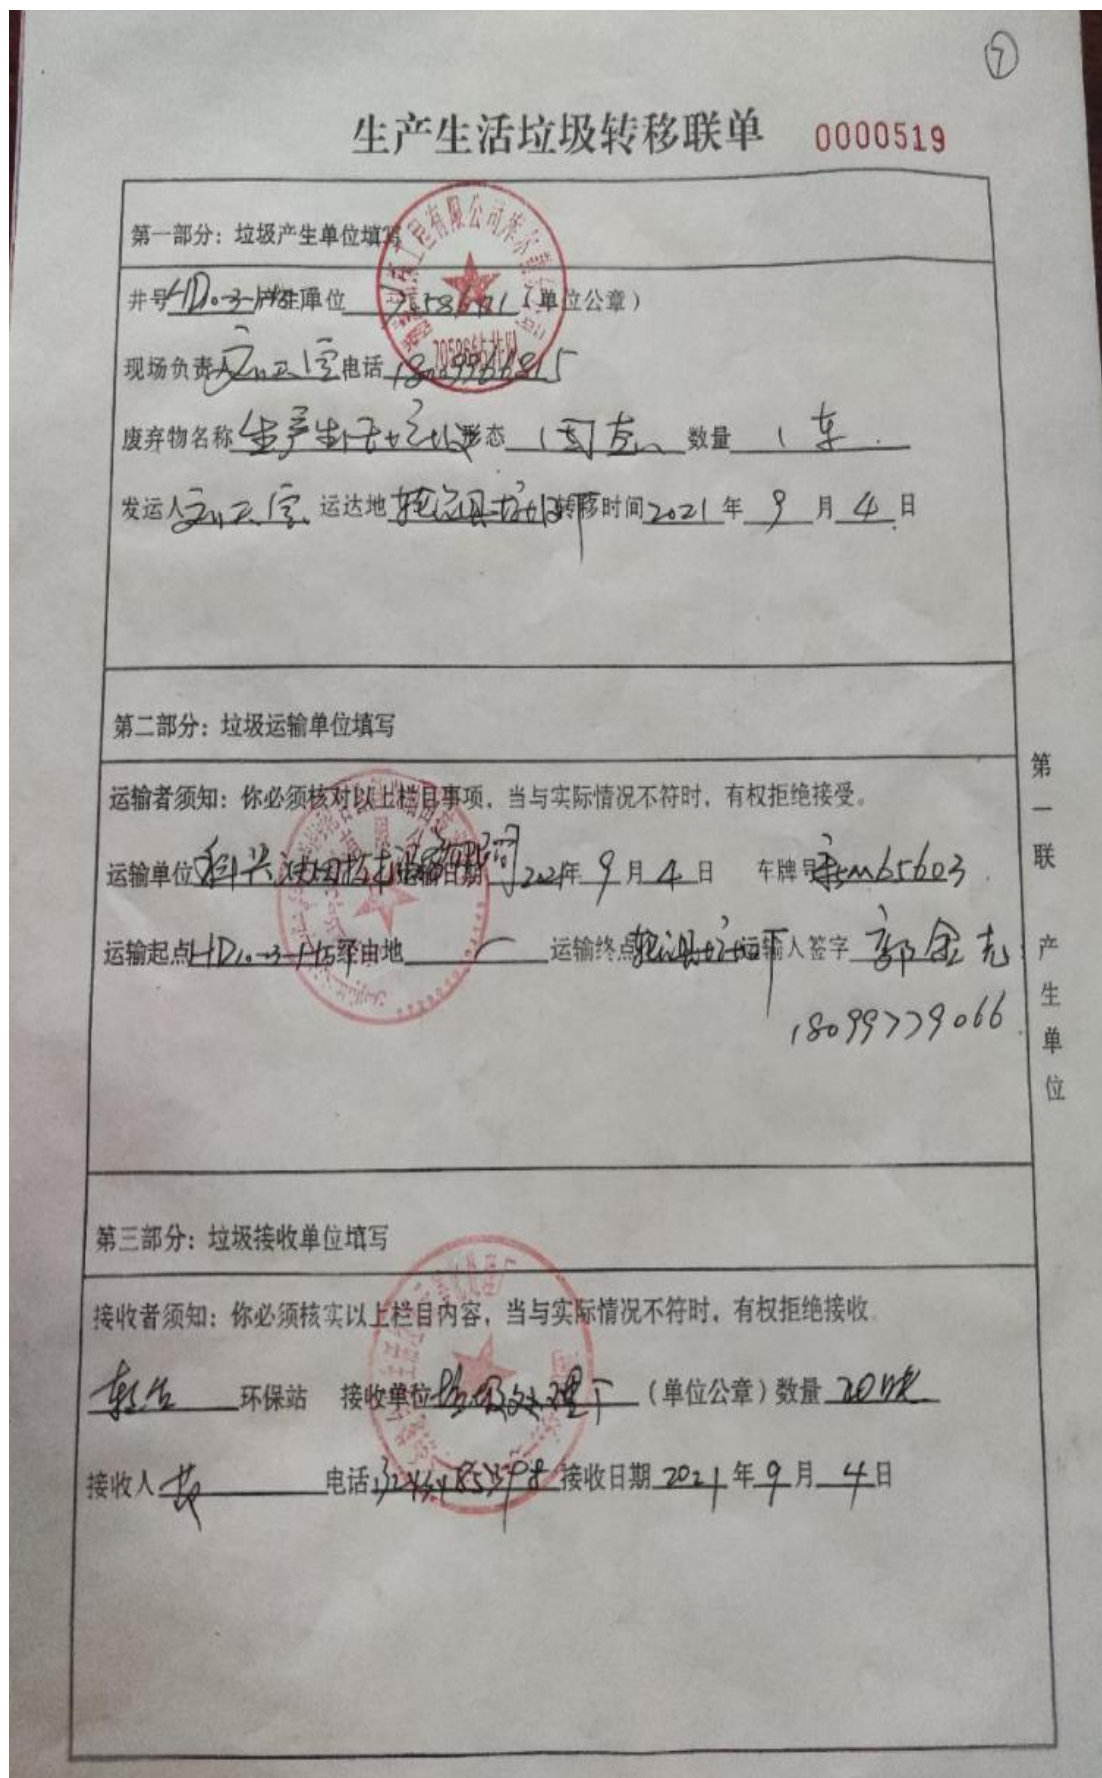 7
生产生活垃圾转移联单 0000519
第一部分：垃圾产生单位填写
井号 HD10-3-1H5 产生单位 （单位公章）
现场负责人 电话
废弃物名称 生产生活垃圾 形态 固态 数量 1车
发运人 运达地 轮台县垃圾 转移时间 2021 年 9 月 4 日
第二部分：垃圾运输单位填写
运输者须知：你必须核对以上栏目事项，当与实际情况不符时，有权拒绝接受。
运输单位 科兴油田技术服务有限公司 运输日期 2021年 9 月 4 日 车牌号 M65603
运输起点 HD10-3-1H5 经由地 运输终点 轮台县垃圾 运输人签字 郭金
18099779066
第三部分：垃圾接收单位填写
接收者须知：你必须核实以上栏目内容，当与实际情况不符时，有权拒绝接收。
轮台 环保站 接收单位 垃圾处理厂 （单位公章）数量
接收人 电话 接收日期 2021 年 9 月 4 日
第一联 产生单位